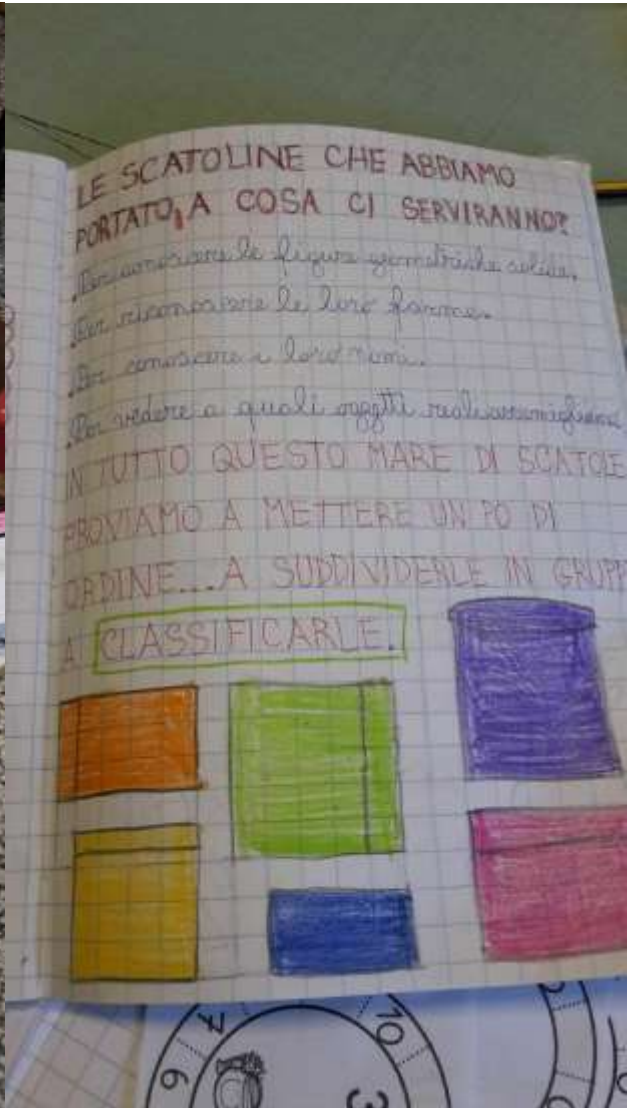 LE SCATOLINE CHE ABBIAMO
PORTATO, A COSA CI SERVIRANNO?
.Per conoscere le figure geometriche solide.
.Per riconoscere le loro forme.
.Per conoscere i loro nomi.
.Per vedere a quali oggetti reali assomigliano
IN TUTTO QUESTO MARE DI SCATOLE
PROVIAMO A METTERE UN PO DI
ORDINE...A SUDDIVIDERLE IN GRUPP
A CLASSIFICARLE.
7
6
10
3